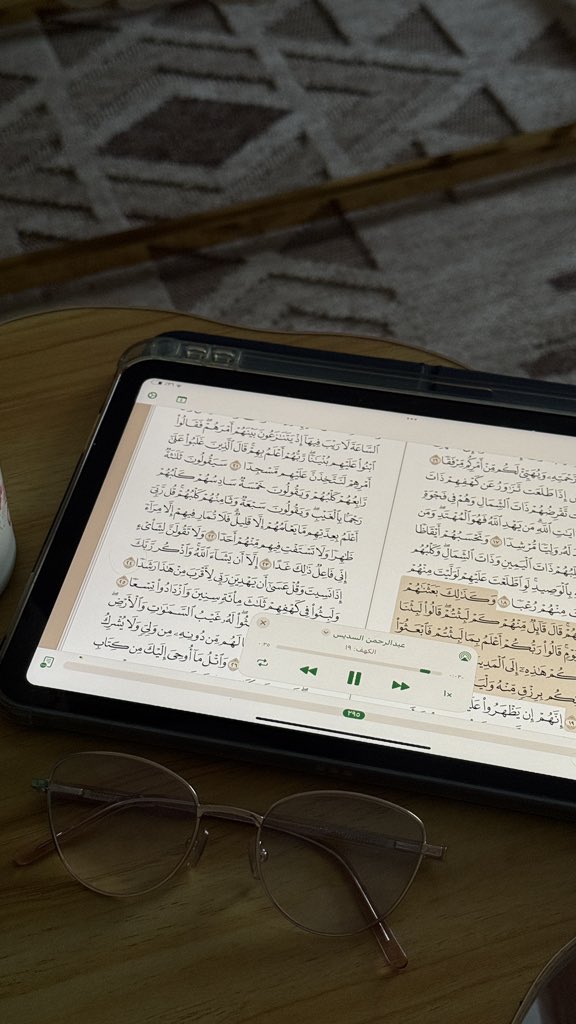 وَيُهَيِّئْ لَكُم مِّنْ أَمْرِكُم مِّرْفَقًا ١٦
إِذَا طَلَعَت تَّزَٰوَرُ عَن كَهْفِهِمْ ذَاتَ
تَّقْرِضُهُمْ ذَاتَ ٱلشِّمَالِ وَهُمْ فِى فَجْوَةٍ
ءَايَٰتِ ٱللَّهِ مَن يَهْدِ ٱللَّهُ فَهُوَ ٱلْمُهْتَدِ وَمَن
لَهُۥ وَلِيًّا مُّرْشِدًا ١٧ وَتَحْسَبُهُمْ أَيْقَاظًا
ذَاتَ ٱلْيَمِينِ وَذَاتَ ٱلشِّمَالِ وَكَلْبُهُم
بِٱلْوَصِيدِ لَوِ ٱطَّلَعْتَ عَلَيْهِمْ لَوَلَّيْتَ مِنْهُمْ
مِنْهُمْ رُعْبًا ١٨ وَكَذَٰلِكَ بَعَثْنَٰهُمْ
قَالَ قَآئِلٌ مِّنْهُمْ كَمْ لَبِثْتُمْ قَالُوا۟ لَبِثْنَا
قَالُوا۟ رَبُّكُمْ أَعْلَمُ بِمَا لَبِثْتُمْ فَٱبْعَثُوٓا۟
هَٰذِهِۦٓ إِلَى
بِرِزْقٍ مِّنْهُ
إِنَّهُمْ إِن يَظْهَرُوا۟
ٱلسَّاعَةَ لَا رَيْبَ فِيهَآ إِذْ يَتَنَٰزَعُونَ بَيْنَهُمْ أَمْرَهُمْ فَقَالُوا۟
ٱبْنُوا۟ عَلَيْهِم بُنْيَٰنًا رَّبُّهُمْ أَعْلَمُ بِهِمْ قَالَ ٱلَّذِينَ غَلَبُوا۟ عَلَىٰٓ
أَمْرِهِمْ لَنَتَّخِذَنَّ عَلَيْهِم مَّسْجِدًا ٢١ سَيَقُولُونَ ثَلَٰثَةٌ
رَّابِعُهُمْ كَلْبُهُمْ وَيَقُولُونَ خَمْسَةٌ سَادِسُهُمْ كَلْبُهُمْ
رَجْمًۢا بِٱلْغَيْبِ وَيَقُولُونَ سَبْعَةٌ وَثَامِنُهُمْ كَلْبُهُمْ قُل رَّبِّىٓ
أَعْلَمُ بِعِدَّتِهِم مَّا يَعْلَمُهُمْ إِلَّا قَلِيلٌ فَلَا تُمَارِ فِيهِمْ إِلَّا مِرَآءً
ظَٰهِرًا وَلَا تَسْتَفْتِ فِيهِم مِّنْهُمْ أَحَدًا ٢٢ وَلَا تَقُولَنَّ لِشَا۟ىْءٍ
إِنِّى فَاعِلٌ ذَٰلِكَ غَدًا ٢٣ إِلَّآ أَن يَشَآءَ ٱللَّهُ وَٱذْكُر رَّبَّكَ
إِذَا نَسِيتَ وَقُلْ عَسَىٰٓ أَن يَهْدِيَنِ رَبِّى لِأَقْرَبَ مِنْ هَٰذَا رَشَدًا ٢٤
وَلَبِثُوا۟ فِى كَهْفِهِمْ ثَلَٰثَ مِا۟ئَةٍ سِنِينَ وَٱزْدَادُوا۟ تِسْعًا ٢٥
لَهُۥ غَيْبُ ٱلسَّمَٰوَٰتِ وَٱلْأَرْضِ
لَهُم مِّن دُونِهِۦ مِن وَلِىٍّ وَلَا يُشْرِكُ
٢٦ وَٱتْلُ مَآ أُوحِىَ إِلَيْكَ مِن كِتَابِ
عبدالرحمن السديس
الكهف: ١٩
1x
٢٩٥